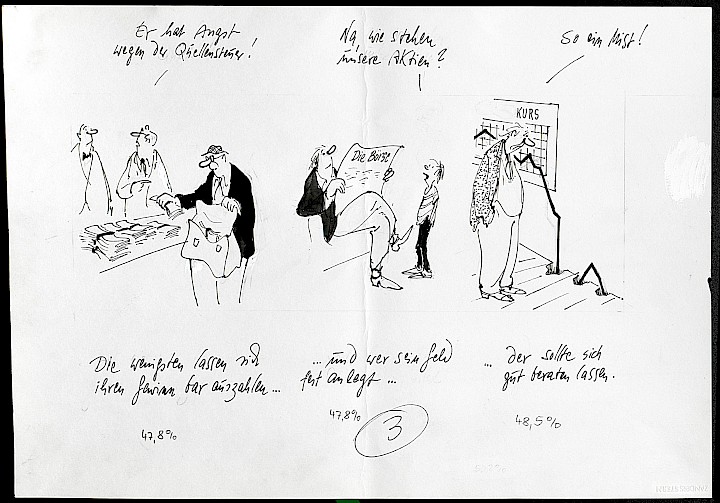 Er hat Angst
wegen der Quellensteuer!
Na, wie stehen
unsere Aktien?
So ein Mist!
KURS
Die Börse
Die wenigsten lassen sich
ihren Gewinn bar auszahlen...
... und wer sein Geld
fest anlegt ...
... der sollte sich
gut beraten lassen.
47,8%
47,8%
3
48,5%